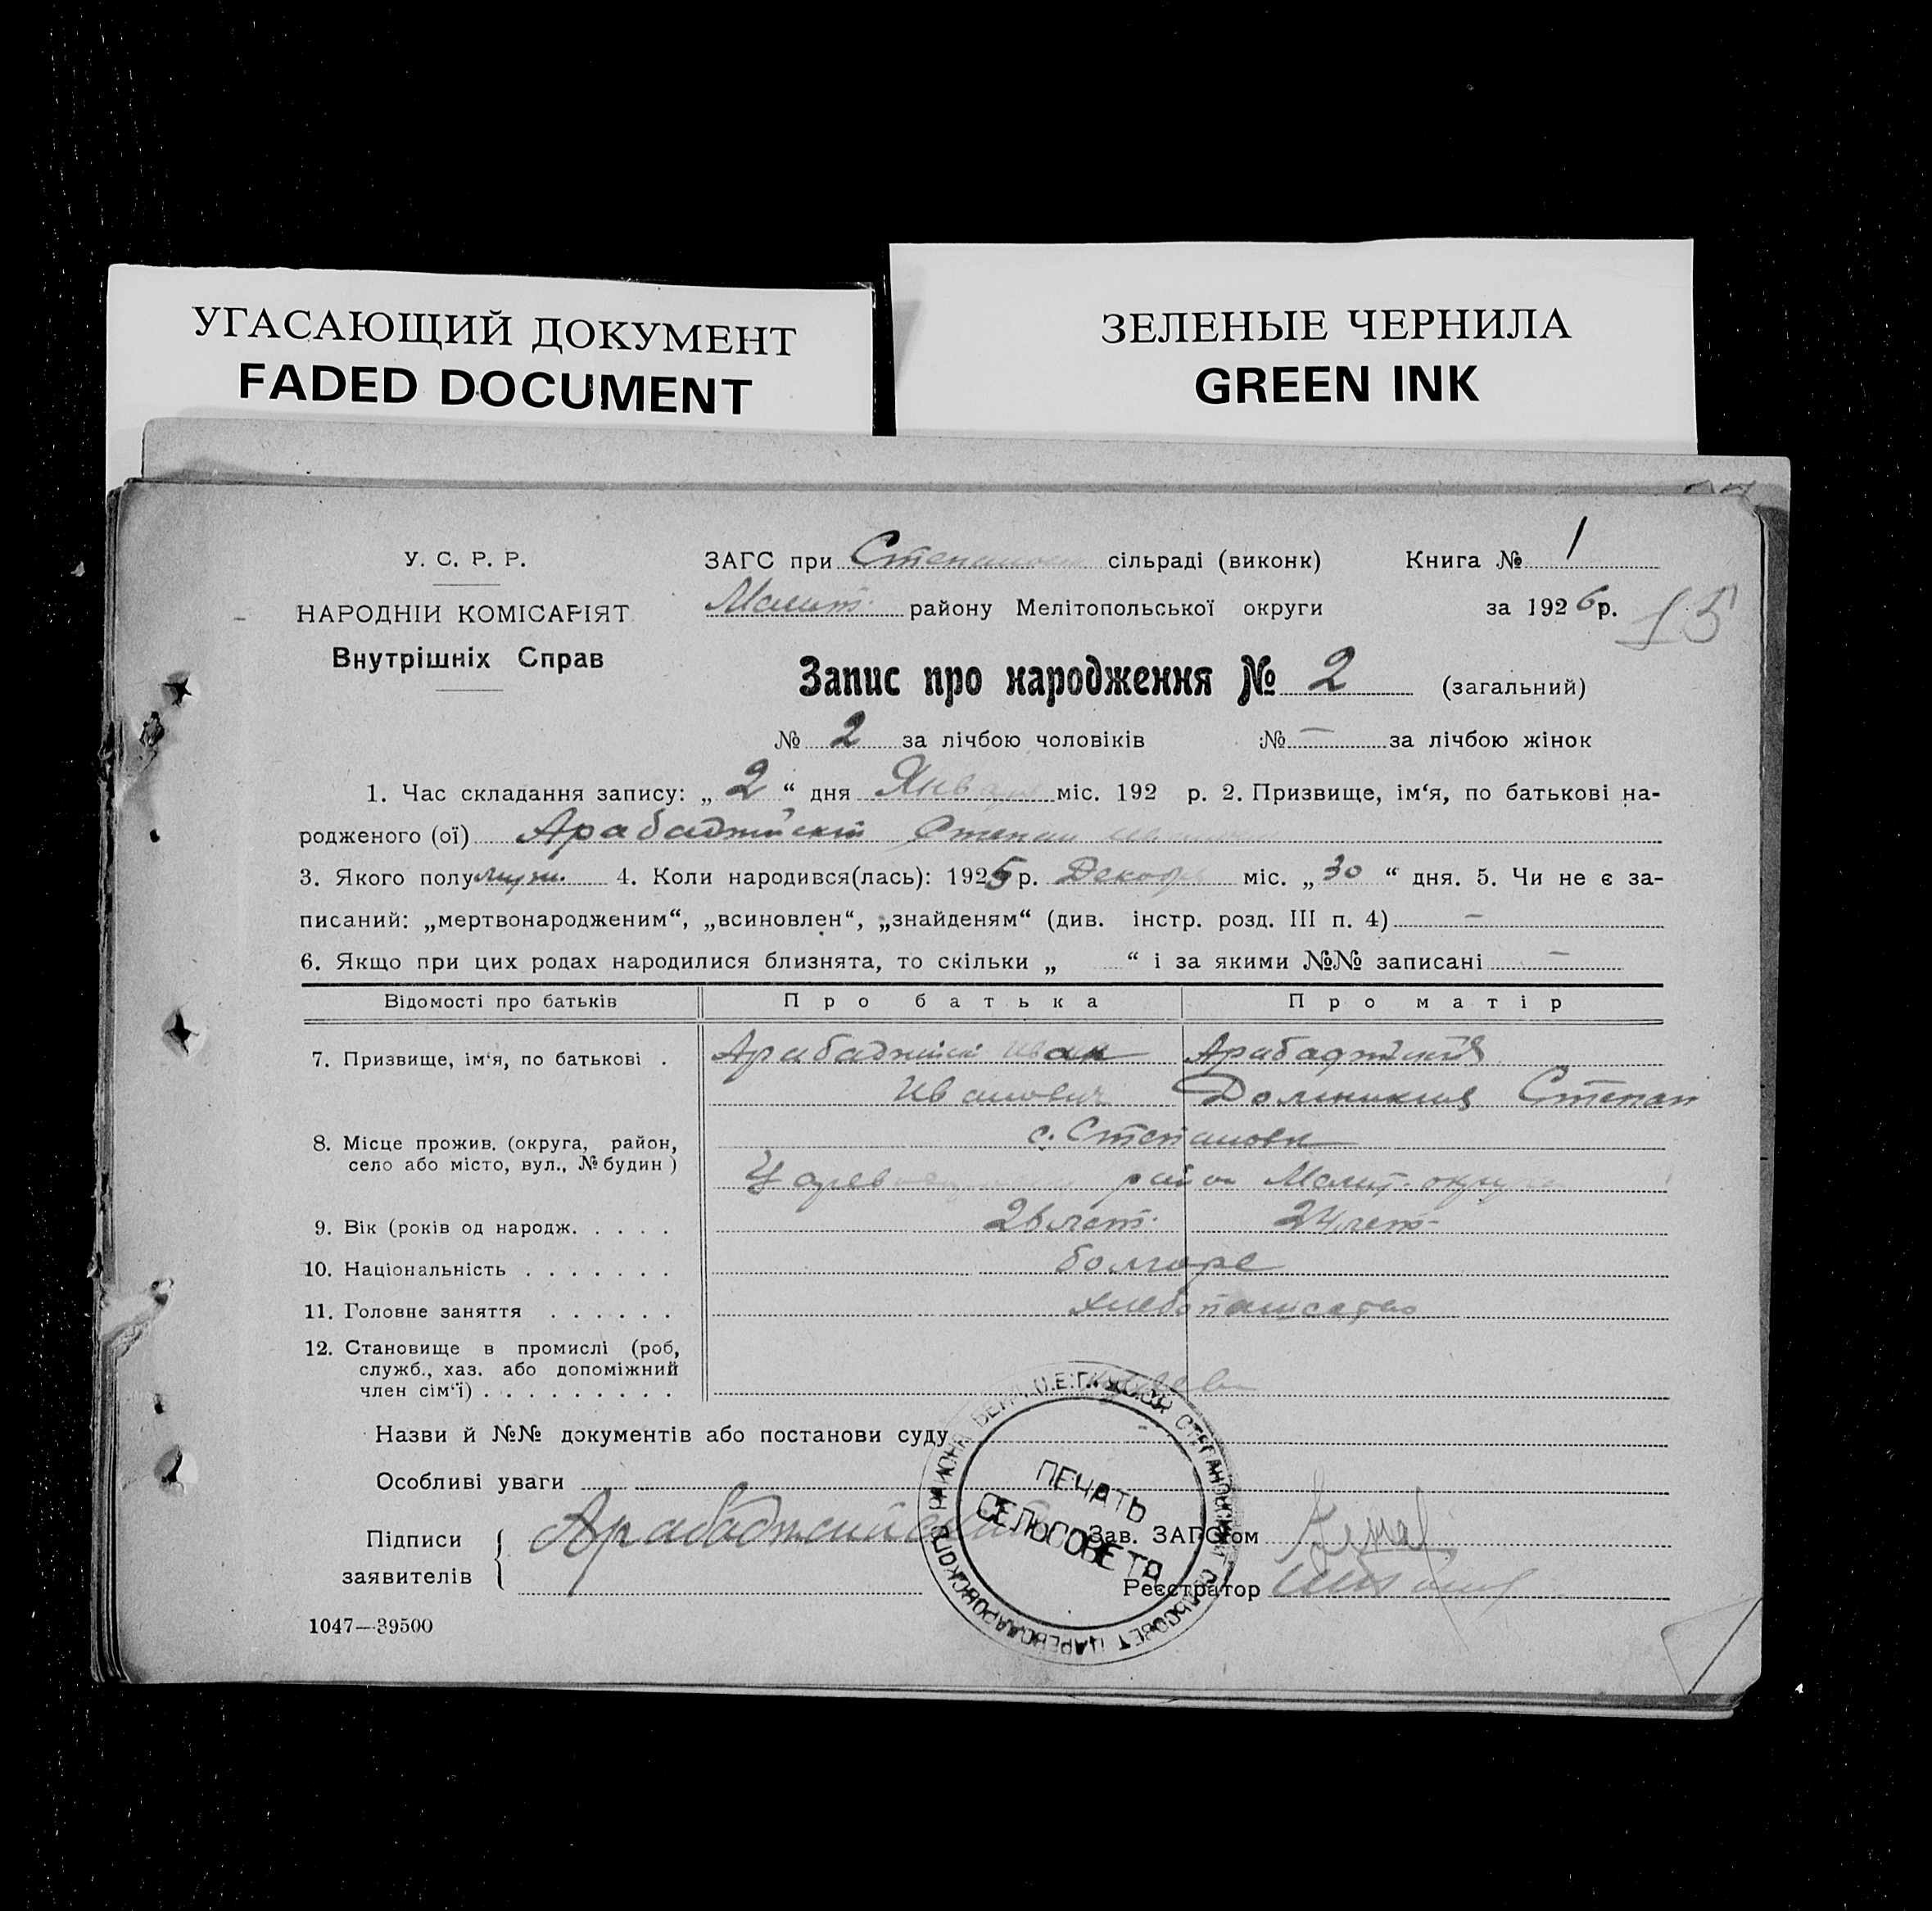 УГАСАЮЩИЙ ДОКУМЕНТ
FADED DOCUMENT
ЗЕЛЕНЫЕ ЧЕРНИЛА
GREEN INK
У. С. Р. Р.
НАРОДНІЙ КОМІСАРІЯТ
Внутрішніх Справ
ЗАГС при сільраді (виконк) Книга № 1
Мелит. району Мелітопольської округи за 1926 р. 15
Запис про народження № 2 (загальний)
№ 2 за лічбою чоловіків № — за лічбою жінок
1. Час складання запису: „ 2 “ дня Января міс. 192 р. 2. Призвище, ім‘я, по батькові на-
родженого (ої) Арабаджийский Степан
3. Якого полу муж. 4. Коли народився(лась): 1925 р. Декабр міс. „ 30 “ дня. 5. Чи не є за-
писаний: „мертвонародженим“, „всиновлен“, „знайденям“ (див. інстр. розд. III п. 4) —
6. Якщо при цих родах народилися близнята, то скільки „ “ і за якими №№ записані —
Відомості про батьків Про батька Про матір
7. Призвище, ім‘я, по батькові . Иван
Иванович Степан
8. Місце прожив. (округа, район, с. Степановк
село або місто, вул., № будин ) район Мелит. округ
9. Вік (років од народж. . . . . 26 лет. 24 лет
10. Національність . . . . . . . болгаре
11. Головне заняття . . . . . . хлебопашество
12. Становище в промислі (роб,
служб., хаз. або допоміжний
член сім‘ї) . . . . . . . . .
Назви й №№ документів або постанови суду
Особливі уваги
ПЕЧАТЬ
СЕЛЬСОВЕТА
Підписи
заявителів
Зав. ЗАГС‘ом
Реєстратор
1047—39500